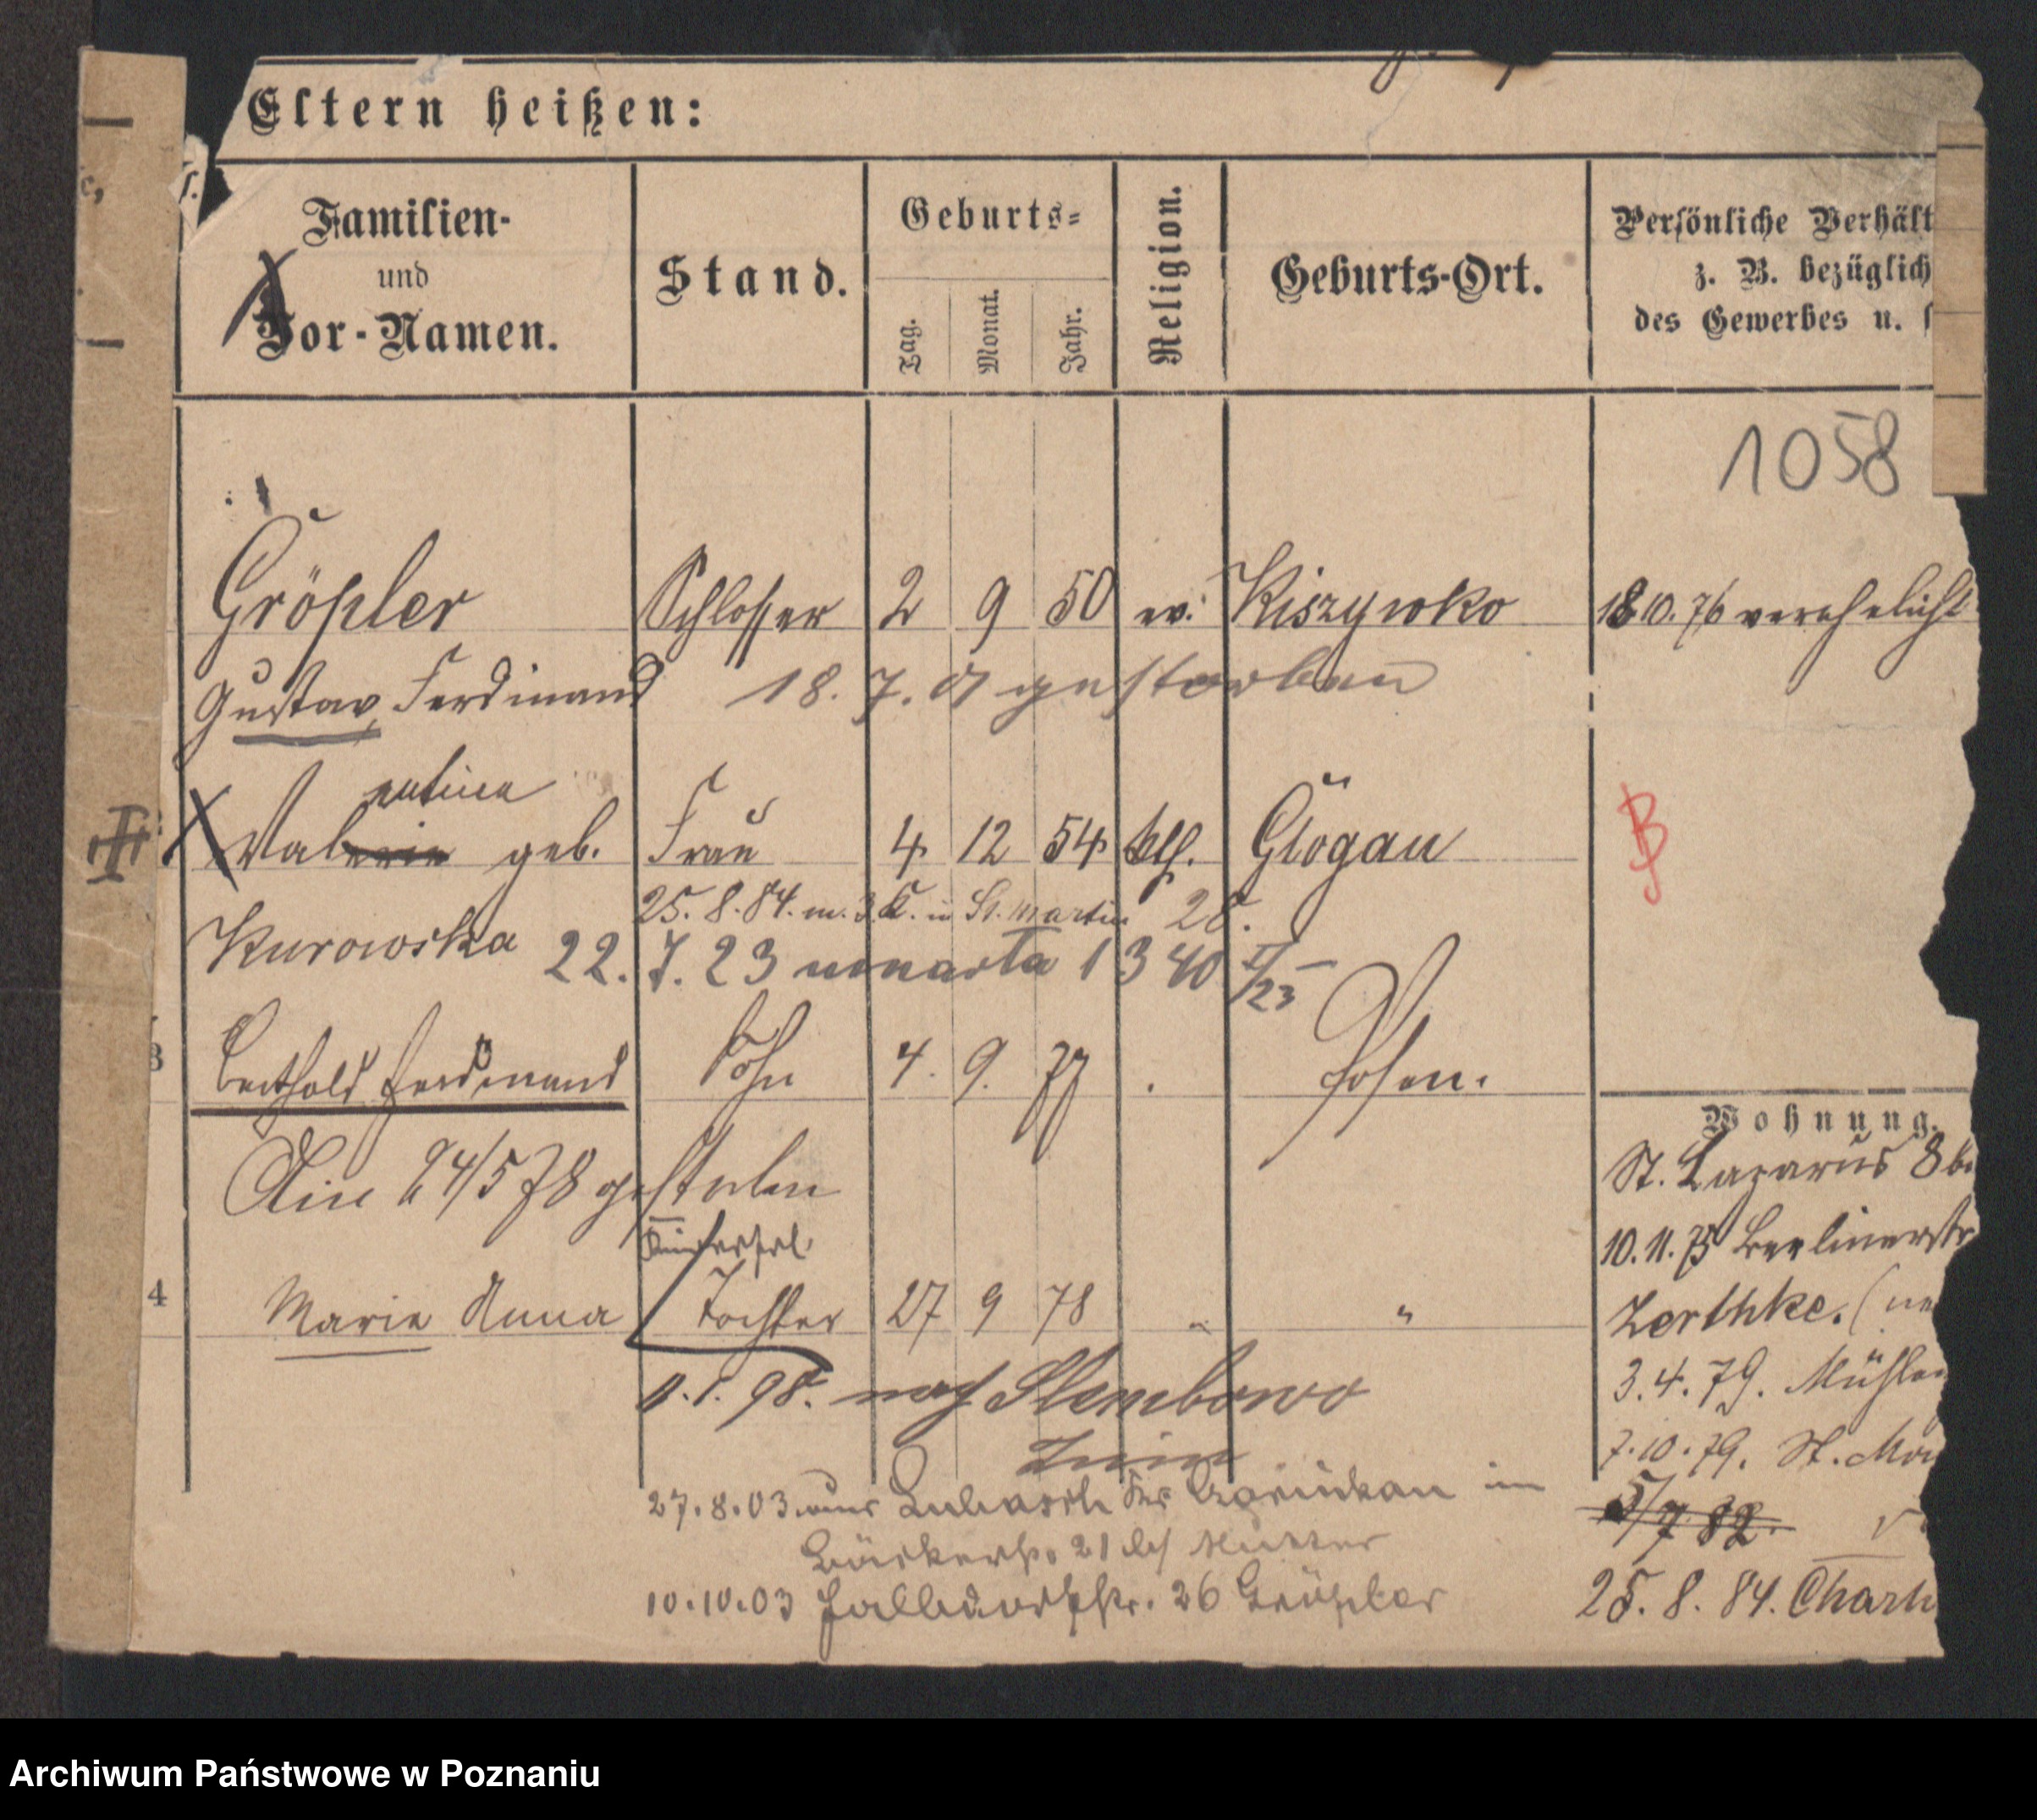 Eltern heißen:
Familien- und Vor-Namen.
Stand.
Geburts-
Tag.
Monat.
Jahr.
Religion.
Geburts-Ort.
Persönliche Verhält
z. B. bezüglich
des Gewerbes u. s
1058
Gröpler Schlosser 2 9 50 ev. Kiszywko 18.10.76 verehelicht
Gustav Ferdinand 18.7. gestorben
entine
Valerie geb. Frau 4 12 54 kth. Glogau
25. 8. 84. m. 3 K. in St. Martin 28.
Kurowska 22. 7. 23 umarła 1340 I/23
3 Berthold Ferdinand Sohn 4. 9. 77 . Posen.
Wohnung.
24/5 78 gestorben
St. Lazarus 8 b
10. 11. 75 Berlinerstr
4 Marie Anna Tochter 27 9 78 " "
Zerthke. (ne
1. 98. nach Slembowo
3. 4. 79. Mühlen
Znin
7. 10. 79. St. Ma
27. 8. 03 aus Lubasch Kr Czarnikau in
5/7 82.
Bäckerstr. 21 bei Mutter
10.10.03 Halbdorfstr. 26 Gröpler
25. 8. 84. Charl
Archiwum Państwowe w Poznaniu